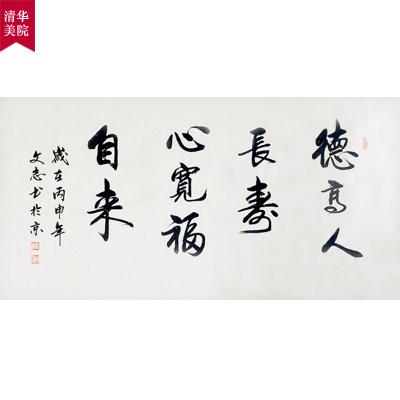 清华
美院
德高人
長壽
心寬福
自来
歲在丙申年
文志书於京